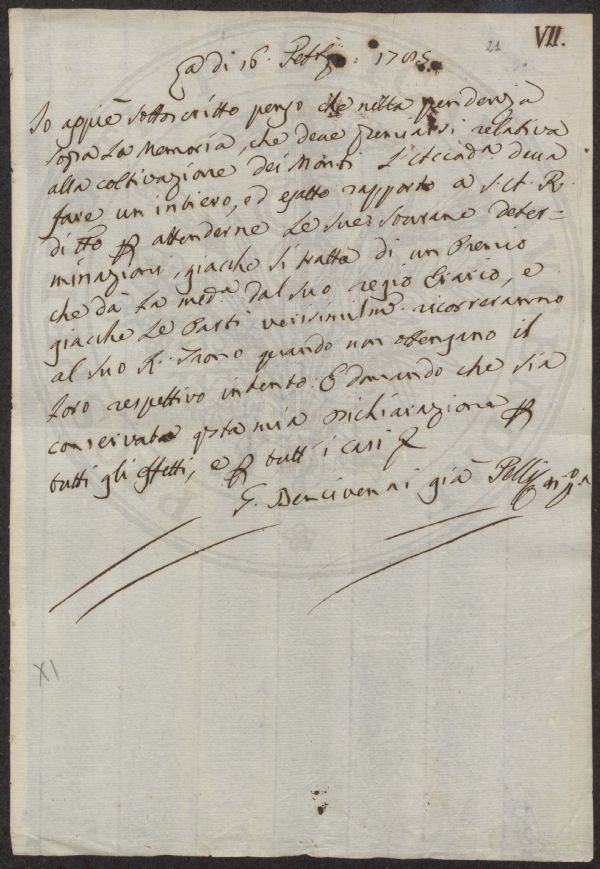 21 VII.
A di 16. Settb. 1785.
Io appiè sottoscritto penso che nella pendenza
sopra la Memoria, che deve premiarsi relativa
alla coltivazione dei Monti L'Accada. deva
fare un intiero, ed esatto rapporto a S. A. R.
di tto p attenderne le sue Sovrane deter=
minazioni, giacche si tratta di un Premio
che dà la meda. dal suo regio Erario, e
giacche le Parti verisimilme. ricorreranno
al suo R. Trono quando non ottengano il
loro respettivo intento. E domando che sia
conservata qsta mia dichiarazione p
tutti gli effetti, e p tutt'i casi
G. Bencivenni già Pelli
XI